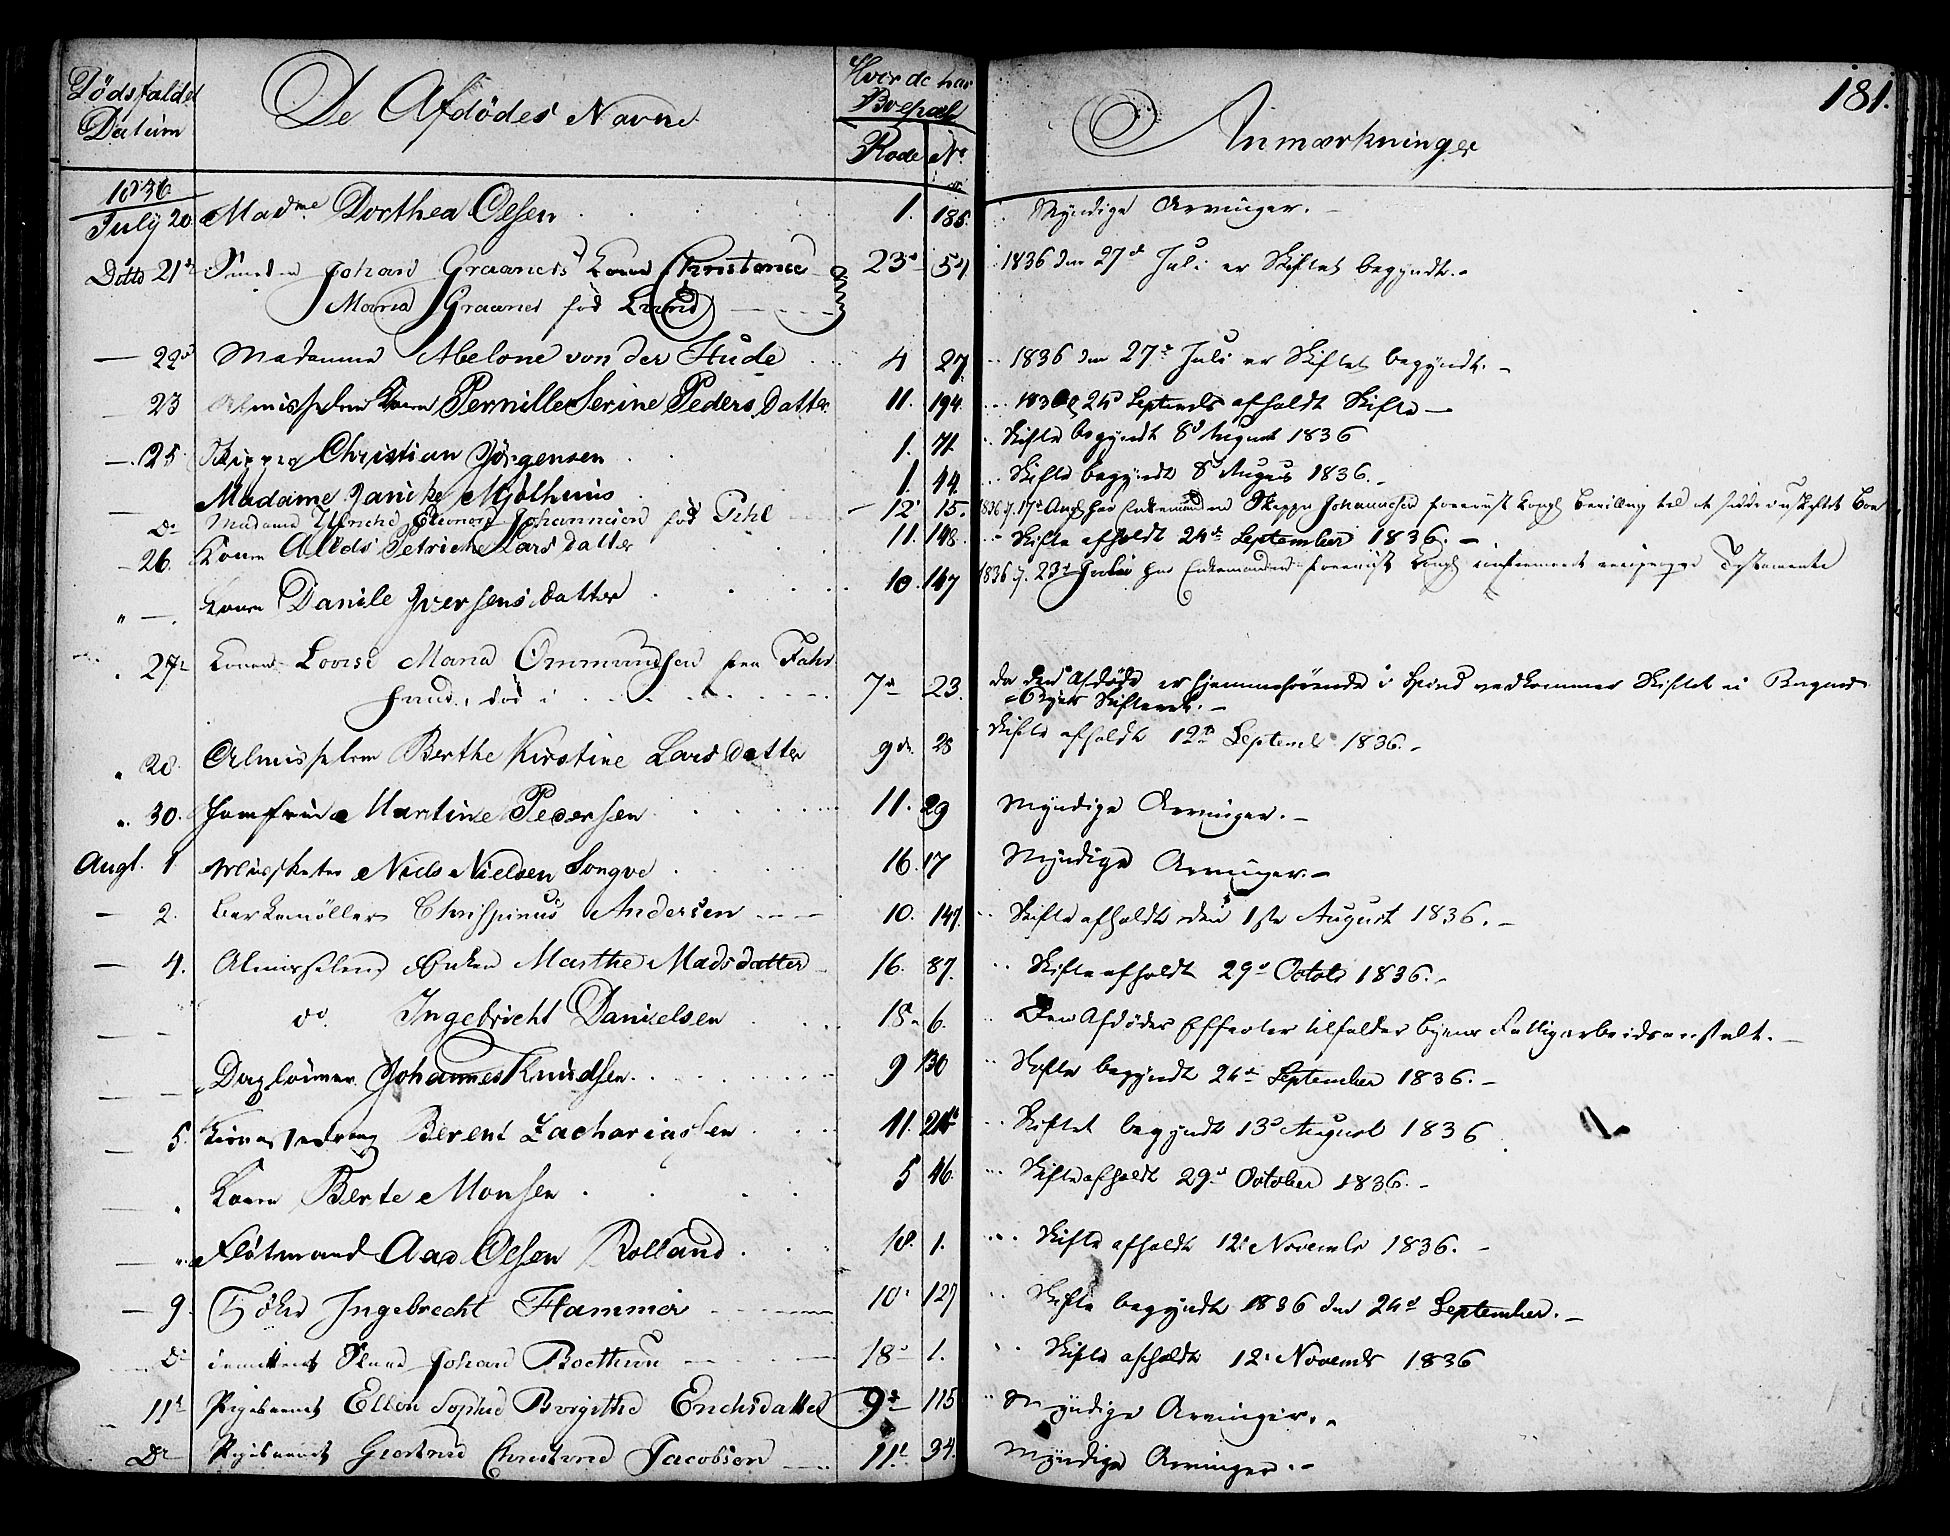 181.
Dödsfaldets Datum
De Afdödes Navne
Hvor de har Boepæl
Rode No
Anmærkninger
1836
July 20 Madme Dorthea Olsen 1. 185. Myndige Arvinger.
Ditto 21de Johan Graaners Kone Christence 23de 57 1836 den 27de Juli er Skiftet begyndt.
Maria Graaner föd Lund
22de Madamme Abelone von der Hude 4 27. 1836 den 27de Juli er Skiftet begyndt.
23 Almisselem Konen Pernille Serine Peders Datter 11. 194. 1836 24d Septembr afholdt Skifte
25 Skipper Christian Jörgensen 1. 71. Skifte begyndt 8d August 1836
Madame Janike Mjölhuus 1. 44. Skifte begyndt 8d August 1836.
Do Madame Eleonore Johannesen föd Pihl 12 15. 1836 17de Augt har Enkemanden Skipper Johannesen foreviist Kongl Bevilling til at sidde i uskiftet Boe
26. Konen Petriche Lars datter 11. 148. Skifte afholdt 24de September 1836.
" Konen Danile Iversens datter 10. 147 1836 23d Julii har Enkemanden foreviist Kongl Testamente
27de Konen Lovise Maria Ommundsen fra Fahr
sund, död i 7de 23. da den Afdöde er hjemmehörende i Spind vedkommer Skiftet ei Bergens
Byes Skifteret.
" 28. Almisselem Berthe Kirstine Lars Datter 9de 28 Skifte afholdt 12te Septembr 1836.
" 30. Jomfrue Martine Pedersen 11. 29 Myndige Arvinger.
Augt. 1 Musketeer Niels Nielsen Songve 16. 17 Myndige Arvinger.
2. Barkemöller Chrispinus Andersen 10. 147. Skifte afholdt den 1ste August 1836.
4. Almisselem Enken Marthe Mads datter 16. 87. Skifte afholdt 29d Octobr 1836.
do. Ingebricht Danielsen 18 6. Den Afdödes Effecter tilfalder Byens Fattigarbeidsanstalt.
Daglönner Johannes Knudsen. 9 130 Skifte begyndt 24de September 1836.
5. Berent Zachariassen 11. Skiftet begyndt 13d August 1836
" Konen Berte Monsen 5 46. Skifte afholdt 29d October 1836.
" Flötmand Aad Olsen Rolland 18. 1. Skifte afholdt 12 Novembr 1836.
9. Ingebrecht Hammer 10. 127 Skifte begyndt 1836 den 24d September.
Do Johan Boethun 18 1. Skifte afholdt 12 Novembr 1836
11te Pigebarnet Ellen Sophie Birgithe Erichsdatter 9de 115 Myndige Arvinger.
Do Pigebarnet Giertrud Christine Jacobsen 11te 34. Myndige Arvinger.